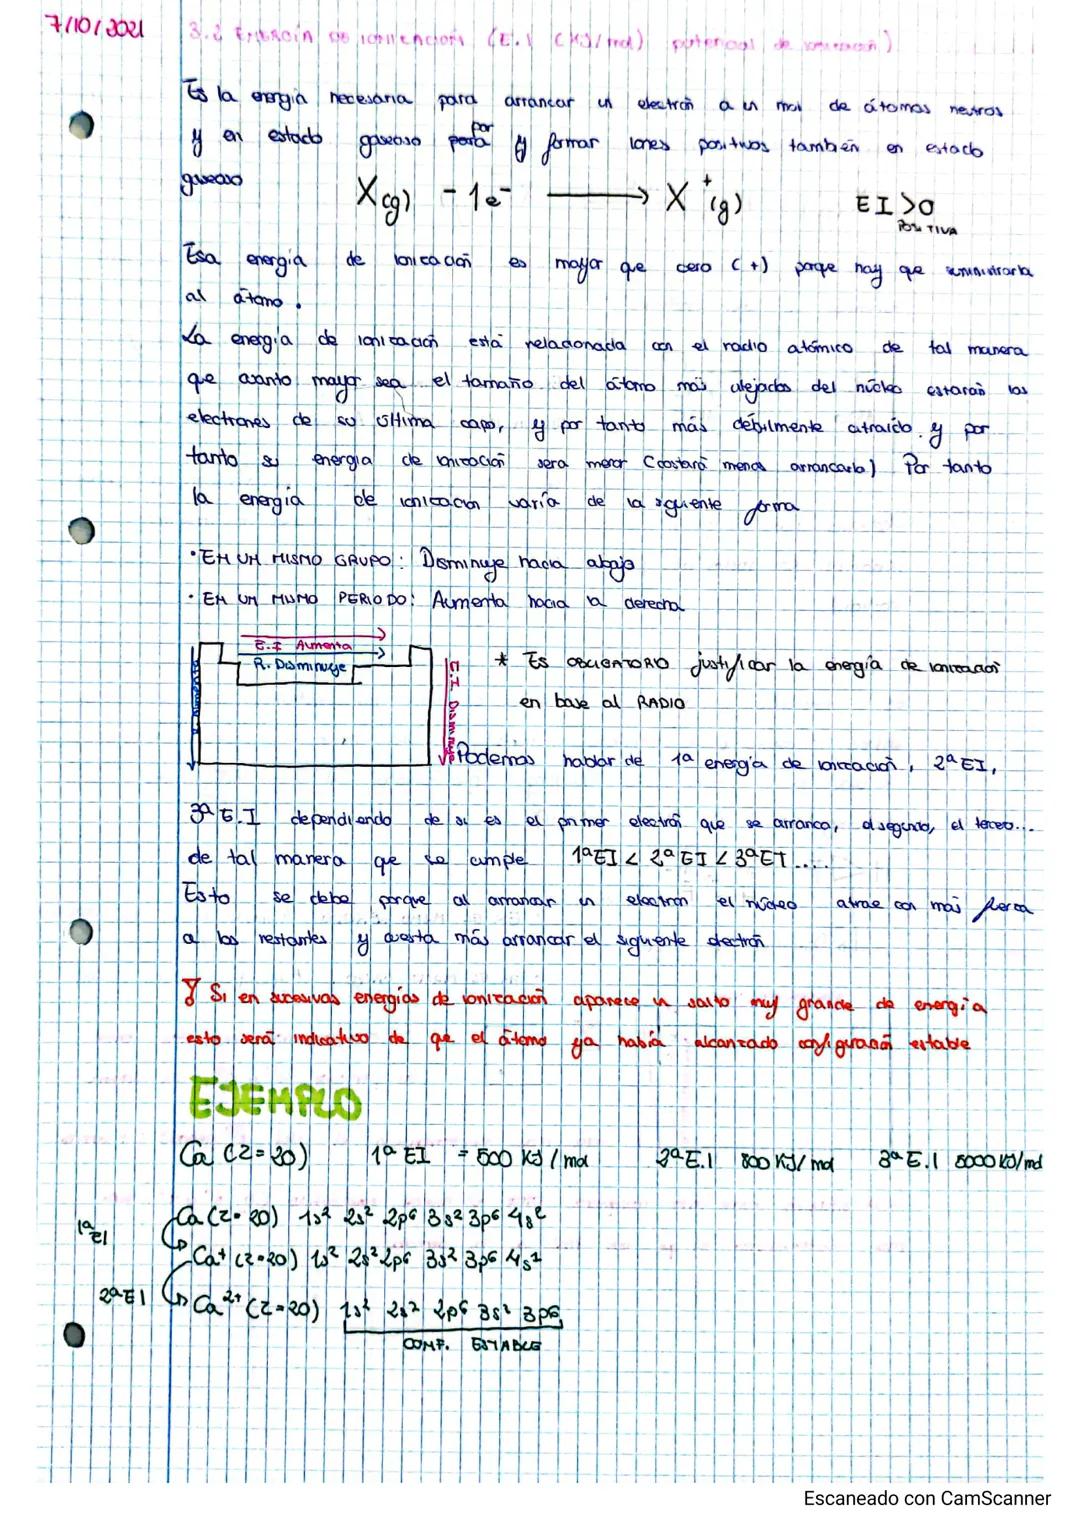 7/10/2021
3.2 ENERGÍA DE IONIZACIÓN (E.I (KJ/mol) potencial de ionización)
Es la energía necesaria para arrancar un electrón a un mol de átomos neutros
y en estado gaseoso para por y formar iones positivos también en estado
gaseoso
X(g) - 1e⁻ ⟶ X⁺(g) EI >0
POSITIVA
Esa energía de ionización es mayor que cero (+) porque hay que suministrarla
al átomo.
La energía de ionización está relacionada con el radio atómico de tal manera
que cuanto mayor sea el tamaño del átomo más alejados del núcleo estarán los
electrones de su última capa, y por tanto más débilmente atraído y por
tanto su energía de ionización será menor (costará menos arrancarlo) Por tanto
la energía de ionización varía de la siguiente forma
• EN UN MISMO GRUPO: Disminuye hacia abajo
• EN UN MISMO PERIODO: Aumenta hacia la derecha
E.I Aumenta
R. Disminuye
E.I Disminuye
* Es OBLIGATORIO justificar la energía de ionización
en base al RADIO
Podemos hablar de 1ª energía de ionización, 2ª EI,
3ª E.I dependiendo de si es el primer electrón que se arranca, el segundo, el tercero...
de tal manera que se cumple 1ª EI < 2ª EI < 3ª EI ....
Esto se debe porque al arrancar un electrón el núcleo atrae con más fuerza
a los restantes y cuesta más arrancar el siguiente electrón
Si en sucesivas energías de ionización aparece un salto muy grande de energía
esto será indicativo de que el átomo ya había alcanzado configuración estable
EJEMPLO
Ca (Z=20) 1ª EI = 500 KJ/mol 2ª E.I 800 KJ/mol 3ª E.I 5000 KJ/mol
Ca (Z=20) 1s² 2s² 2p⁶ 3s² 3p⁶ 4s²
1ª EI
Ca⁺ (Z=20) 1s² 2s² 2p⁶ 3s² 3p⁶ 4s¹
2ª EI
Ca²⁺ (Z=20) 1s² 2s² 2p⁶ 3s² 3p⁶
CONF. ESTABLE
Escaneado con CamScanner